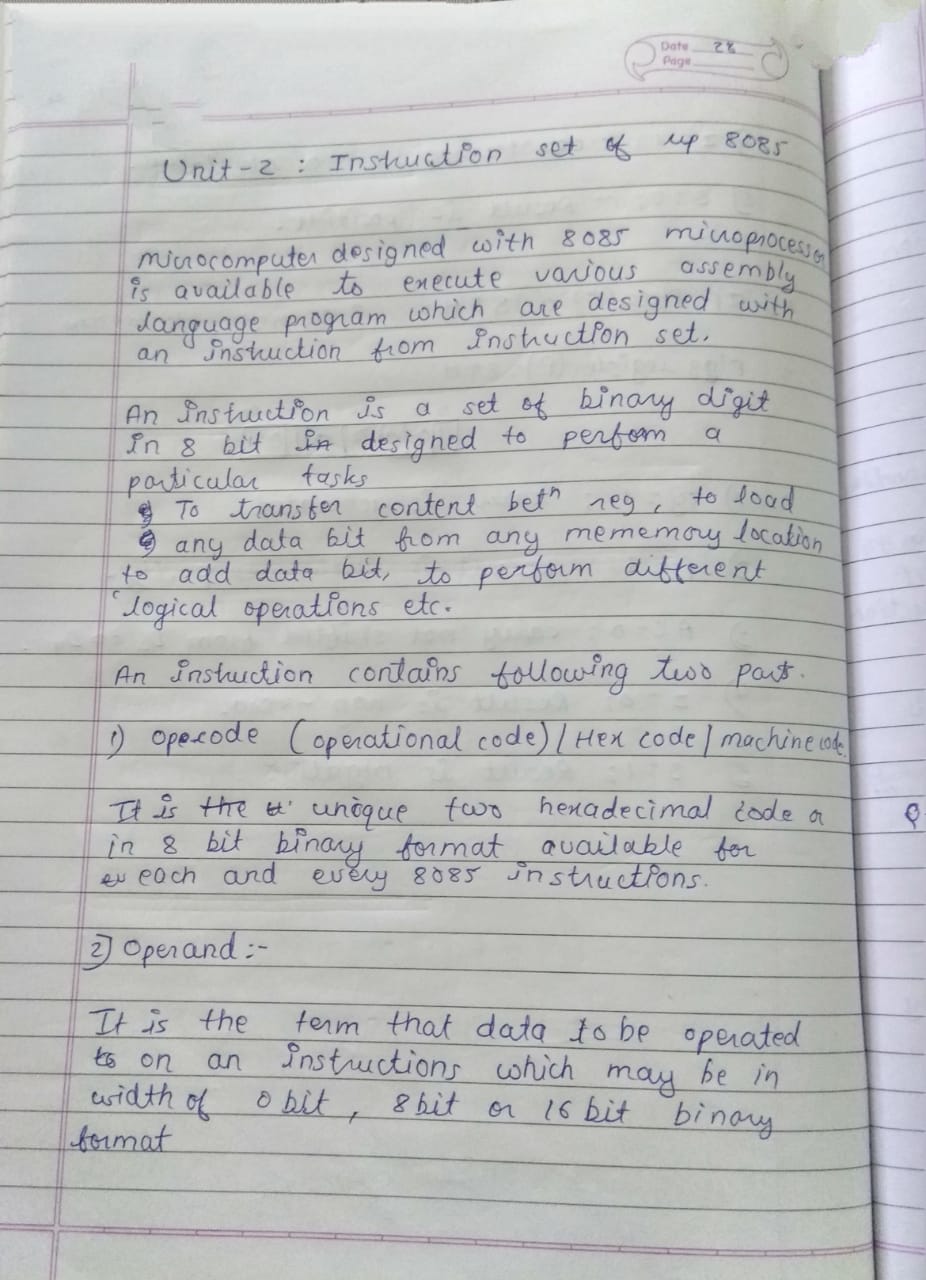 Date 28
Page
Unit-2 : Instruction set of up 8085
microcomputer designed with 8085 microprocessor
is available to execute various assembly
language program which are designed with
an instruction from instruction set.
An instruction is a set of binary digit
in 8 bit in designed to perform a
particular tasks
To transfer content betn reg, to load
any data bit from any mememory location
to add data bit, to perform different
logical operations etc.
An instruction contains following two part.
1) opecode (operational code) / Hex code / machine code.
It is the unique two hexadecimal code or
in 8 bit binary format available for
each and every 8085 instructions.
2) Operand :-
It is the term that data to be operated
on an instructions which may be in
width of 0 bit, 8 bit or 16 bit binary
format